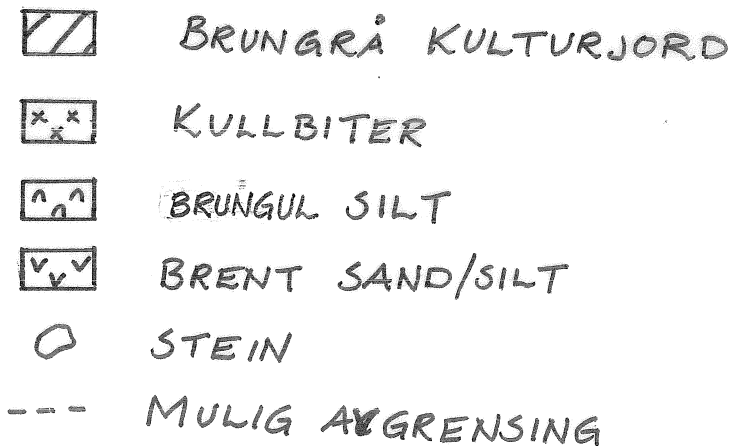 BRUNGRÅ KULTURJORD
KULLBITER
BRUNGUL SILT
BRENT SAND/SILT
STEIN
MULIG AVGRENSING